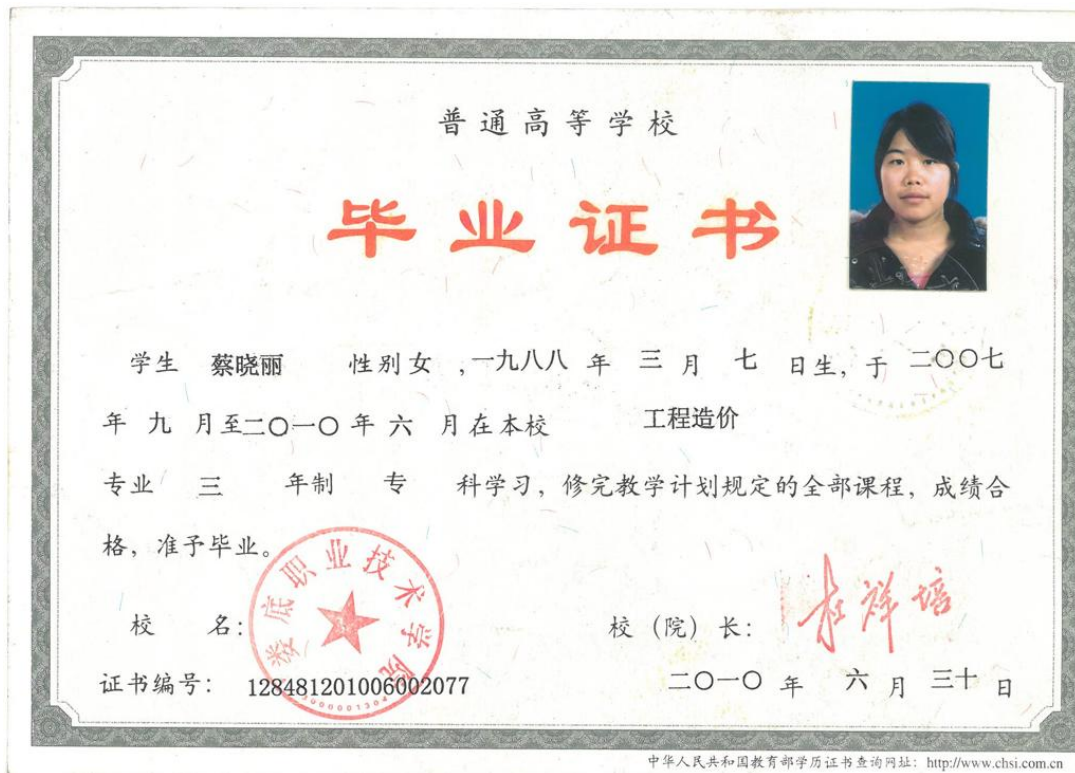 普通高等学校
毕业证书
学生 蔡晓丽 性别女 ,一九八八 年 三 月 七 日生, 于 二〇〇七
年 九 月至二〇一〇年 六 月在本校 工程造价
专业 三 年制 专 科学习, 修完教学计划规定的全部课程, 成绩合
格, 准予毕业。
娄底职业技术学院
校 名: 校 (院) 长:
证书编号: 128481201006002077 二〇一〇 年 六 月 三十 日
中华人民共和国教育部学历证书查询网址: http://www.chsi.com.cn